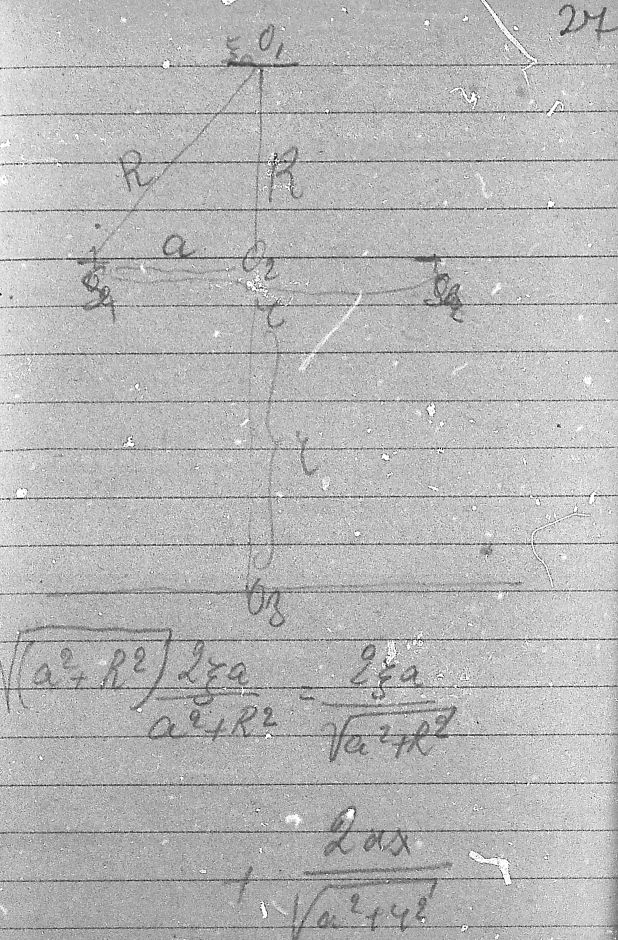 27
ξ O₁
R R
a O₂
r
r
O₃
√(a²+R²) 2ξa/(a²+R²) = 2ξa/√(a²+R²)
+ 2ax/√(a²+r²)